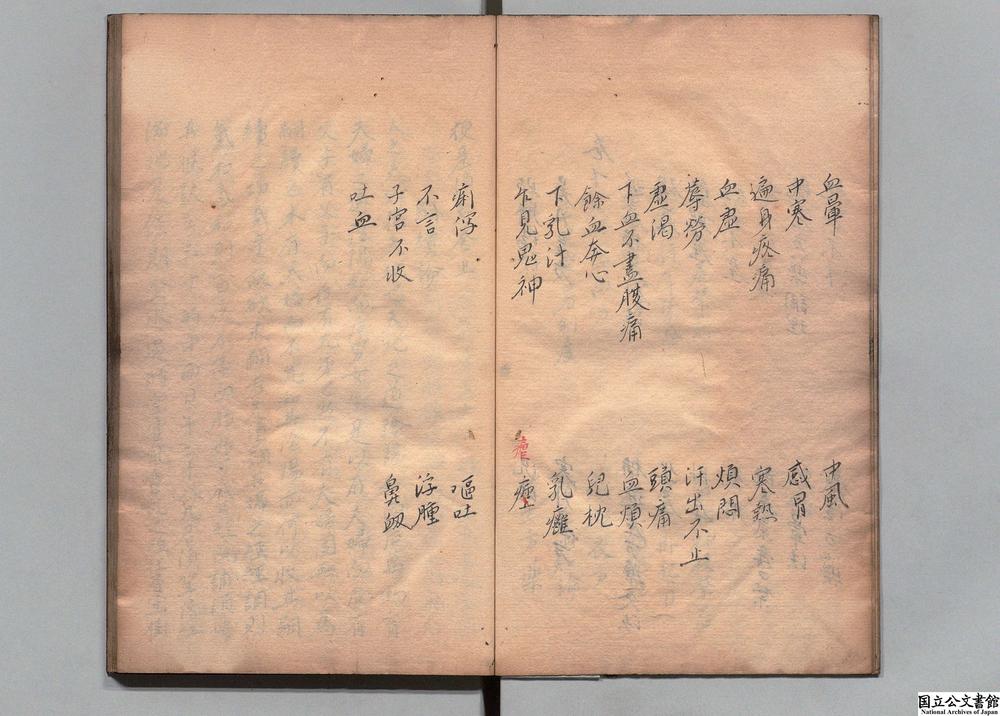 血暈 中風
中寒 感冒
遍身疼痛 寒熱
血虛 煩悶
蓐勞 汗出不止
虛渴 頭痛
下血不盡腹痛 血煩
餘血奔心 兒枕
下乳汁 乳癰
乍見鬼神
痢瀉 嘔吐
不言 浮腫
子宮不收 鼻衂
吐血
国立公文書館
National Archives of Japan